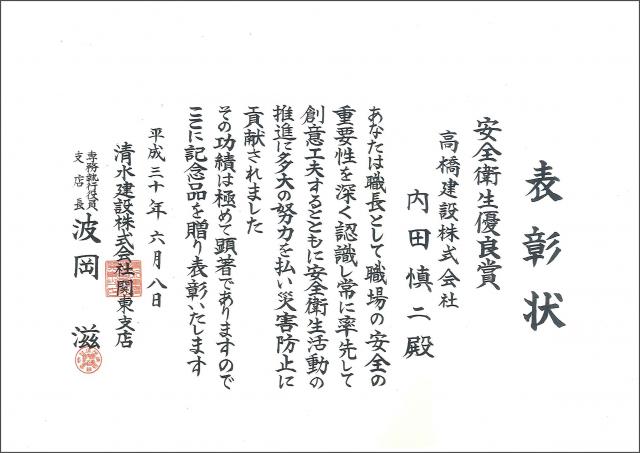 表彰状
安全衛生優良賞
高橋建設株式会社
内田慎二殿
あなたは職長として職場の安全の
重要性を深く認識し常に率先して
創意工夫するとともに安全衛生活動の
推進に多大の努力を払い災害防止に
貢献されました
その功績は極めて顕著でありますので
ここに記念品を贈り表彰いたします
平成三十年六月八日
清水建設株式会社関東支店
専務執行役員
支店長
波岡滋